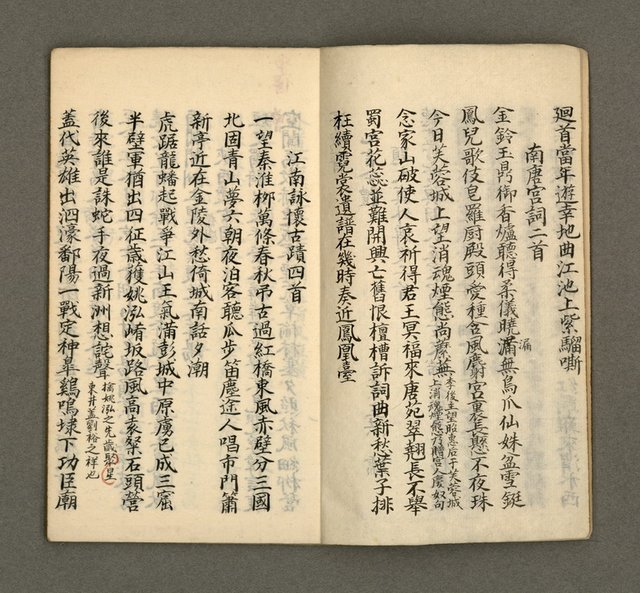 迴首當年遊幸地曲江池上紫騮嘶
南唐宮詞二首
金鈴玉鼎御香爐聽得柔儀曉滿無烏爪仙姝盆雪鋌
漏
鳳兒歌伎皂羅厨殿頭愛種含風麝宮裏長懸不夜珠
今日芙蓉城上望消魂煙態尚縈無
李後主望昭惠后于芙蓉城
上消魂煙態乃贈宮人慶奴句
念家山破使人哀祈得君王冥福來唐苑翠翹長不舉
蜀宮花蕊並難開興亡舊恨檀槽訴詞曲新愁葉子排
枉續霓裳遺譜在幾時奏近鳳凰臺
江南詠懷古蹟四首
一望秦淮柳萬條春秋弔古過紅橋東風赤壁分三國
北固青山夢六朝夜泊客聽瓜步笛塵途人唱市門簫
新亭近在金陵外愁倚城南話夕潮
虎踞龍蟠起戰爭江山王氣滿彭城中原虜已成三窟
半壁軍猶出四征歲穫姚泓崤坂路風高袁粲石頭營
後來誰是誅蛇手夜過新洲想詫聲
擒姚泓之先歲聚星
東井蓋劉裕之祥也
蓋代英雄出泗濠鄱陽一戰定神皋鷄鳴埭下功臣廟